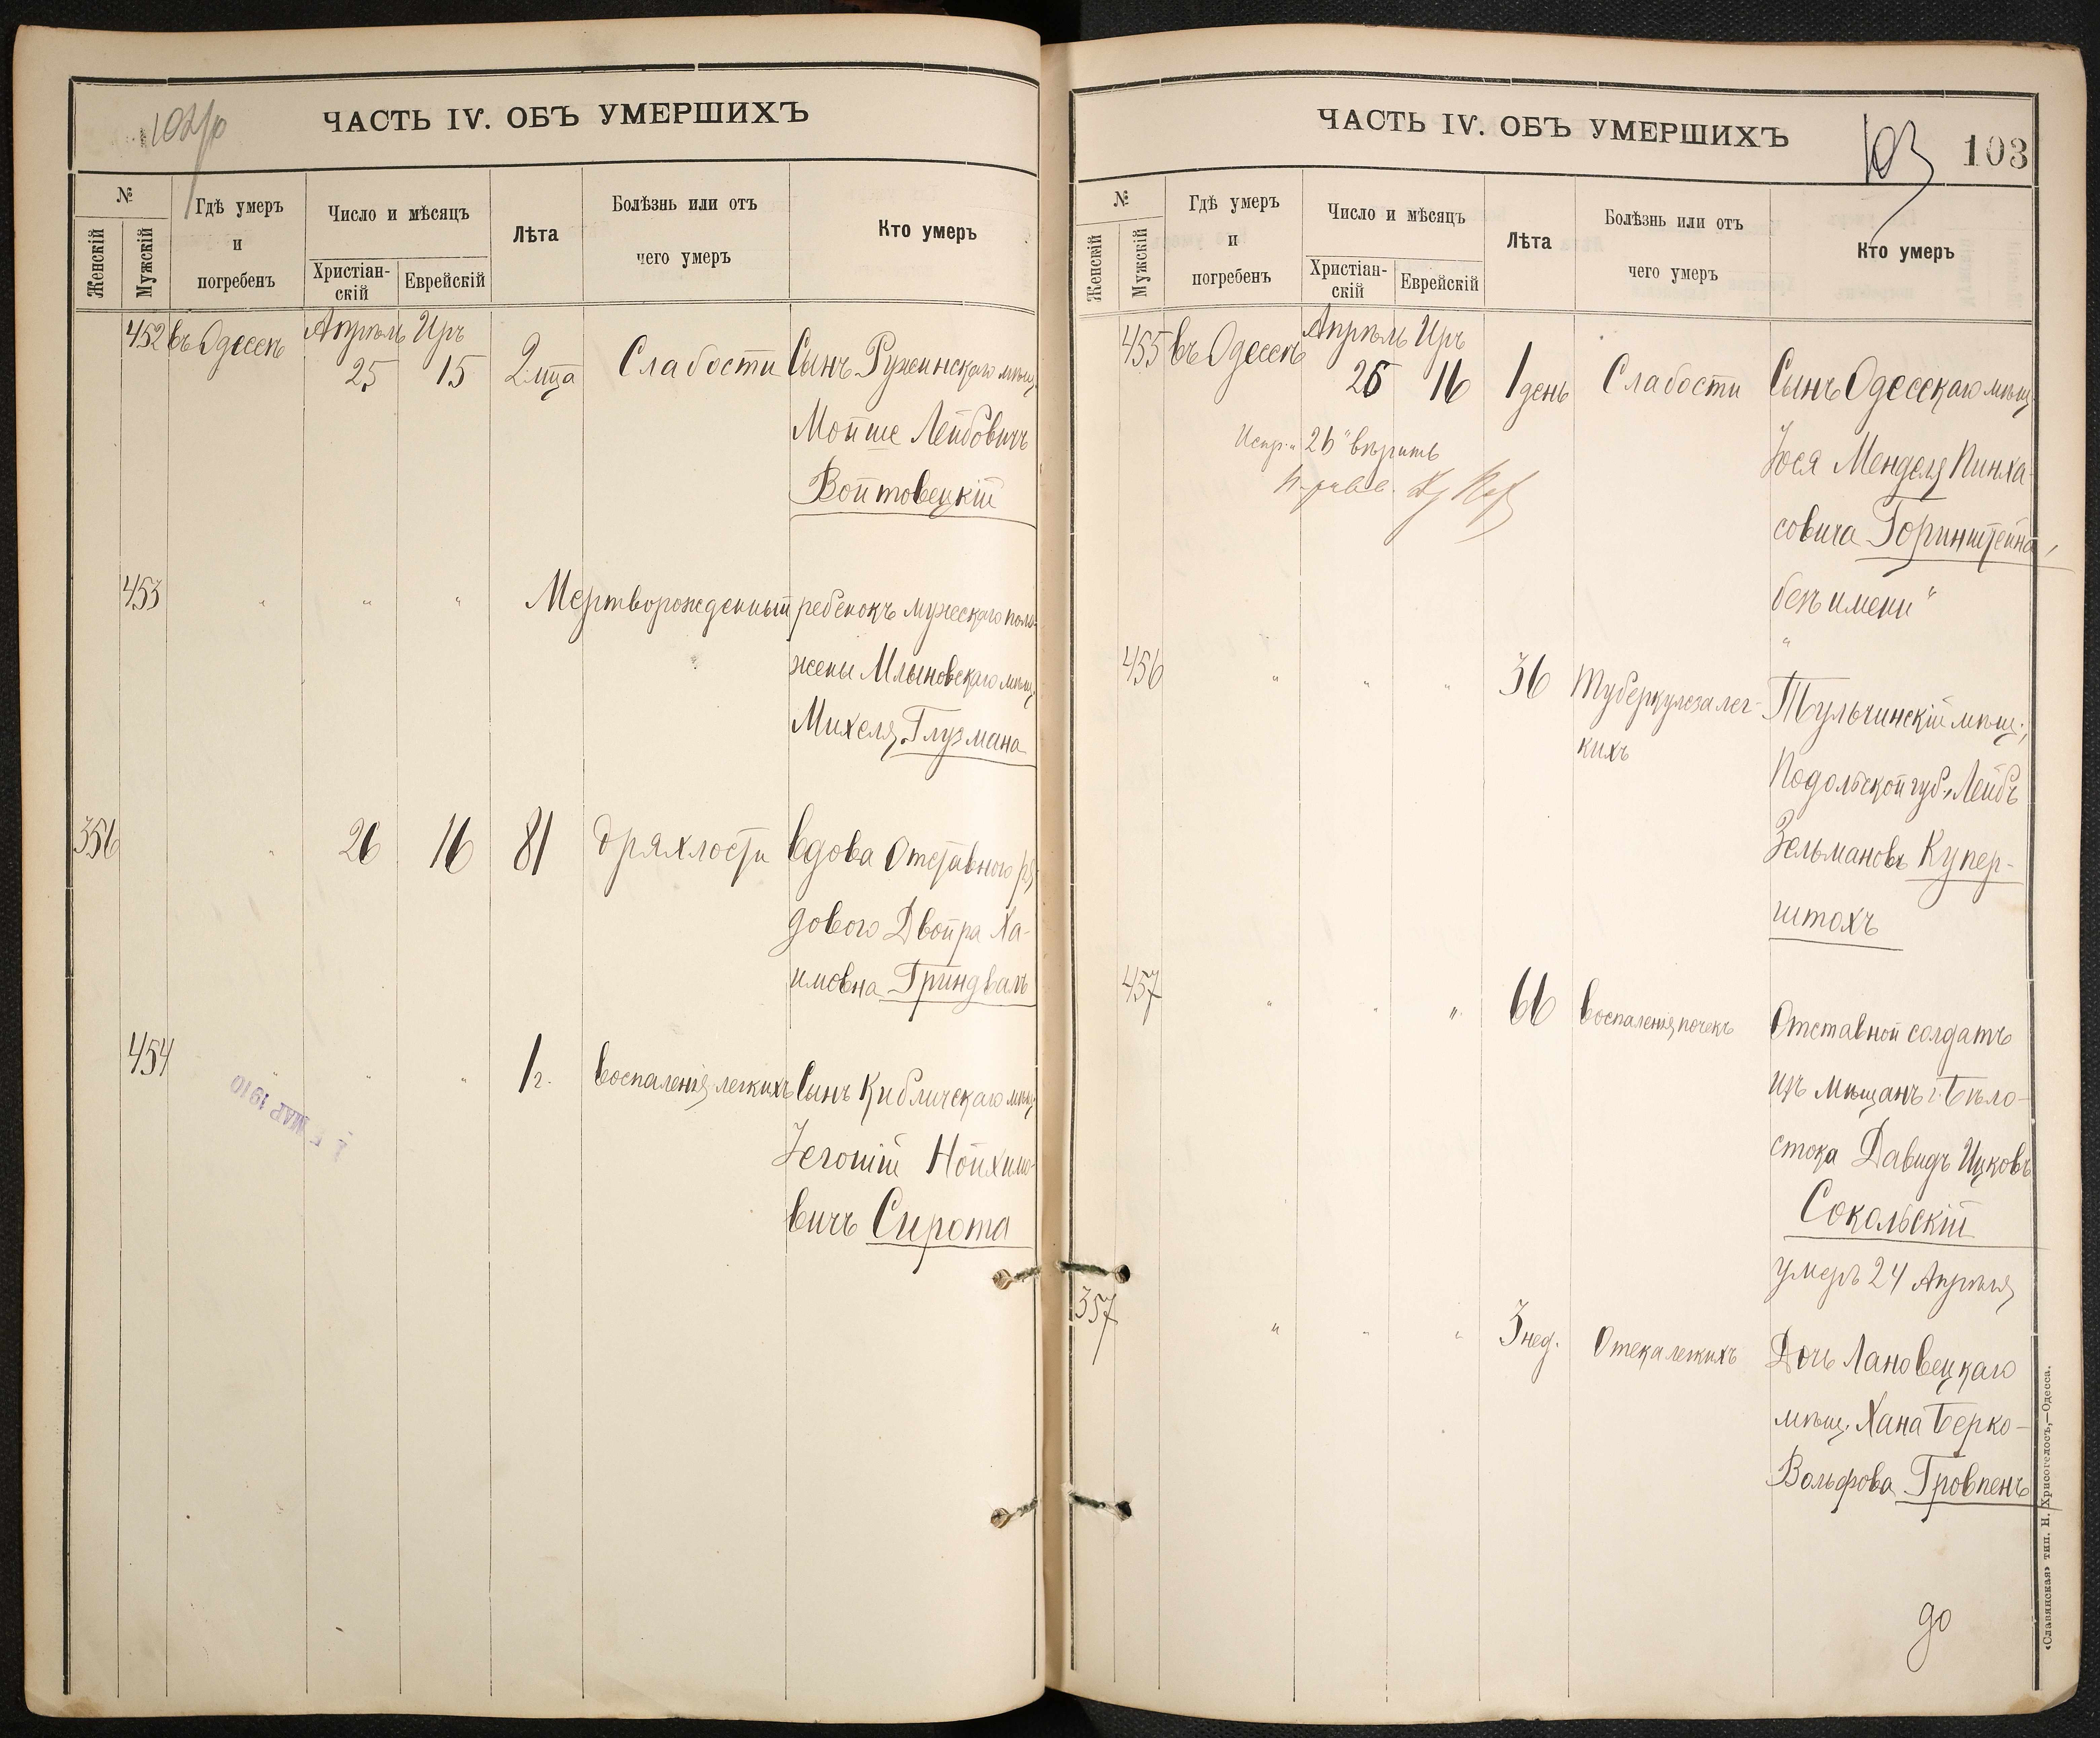 102/о
ЧАСТЬ IV. ОБЪ УМЕРШИХЪ
№
Женскій
Мужскій
Гдѣ умеръ
и
погребенъ
Число и мѣсяцъ
Христіан-
скій
Еврейскій
Лѣта
Болѣзнь или отъ
чего умеръ
Кто умеръ
452 въ Одессѣ Апрѣль Иръ
25 15 2 мца Слабости Сынъ Ружинскаго мѣщ.
Мойше Лейбовичъ
Войтовецкій
453 " " " Мертворожденный ребенокъ мужескаго пола
жены Млыновскаго мѣщ.
Михеля Глузмана
356 " 26 16 81 дряхлости вдова Отставного ря
дового Двойра Ха-
имовна Гриндваль
454 " " " 1 г. воспаленія легкихъ Сынъ Кибличскаго мѣщ.
Іегошій Нойхимо-
вичъ Сирота
МАР 1910
ЧАСТЬ IV. ОБЪ УМЕРШИХЪ
103
103
№
Женскій
Мужскій
Гдѣ умеръ
и
погребенъ
Число и мѣсяцъ
Христіан-
скій
Еврейскій
Лѣта
Болѣзнь или отъ
чего умеръ
Кто умеръ
455 въ Одессѣ Апрѣль Иръ
26 16 1 день Слабости Сынъ Одесскаго мѣщ.
Іося Менделя Пинха-
совича Горинштейна,
безъ имени"
Испр. "26" вѣрить
456 " " " 36 Туберкулеза лег-
кихъ
Тульчинскій мѣщ.,
Подольской губ., Лейбъ
Зельмановъ Купер-
штохъ
457 " " " 66 воспаленія почекъ Отставной солдатъ
изъ мѣщанъ г. Бѣло-
стока Давидъ Ицковъ
Сокольскій
умеръ 24 Апрѣля
357 " " " 3 нед. Отека легкихъ Дочь Лановецкаго
мѣщ. Хана Берко-
Вольфова Гровпенъ
до
«Славянская» тип. Н. Хрисогелосъ,—Одесса.